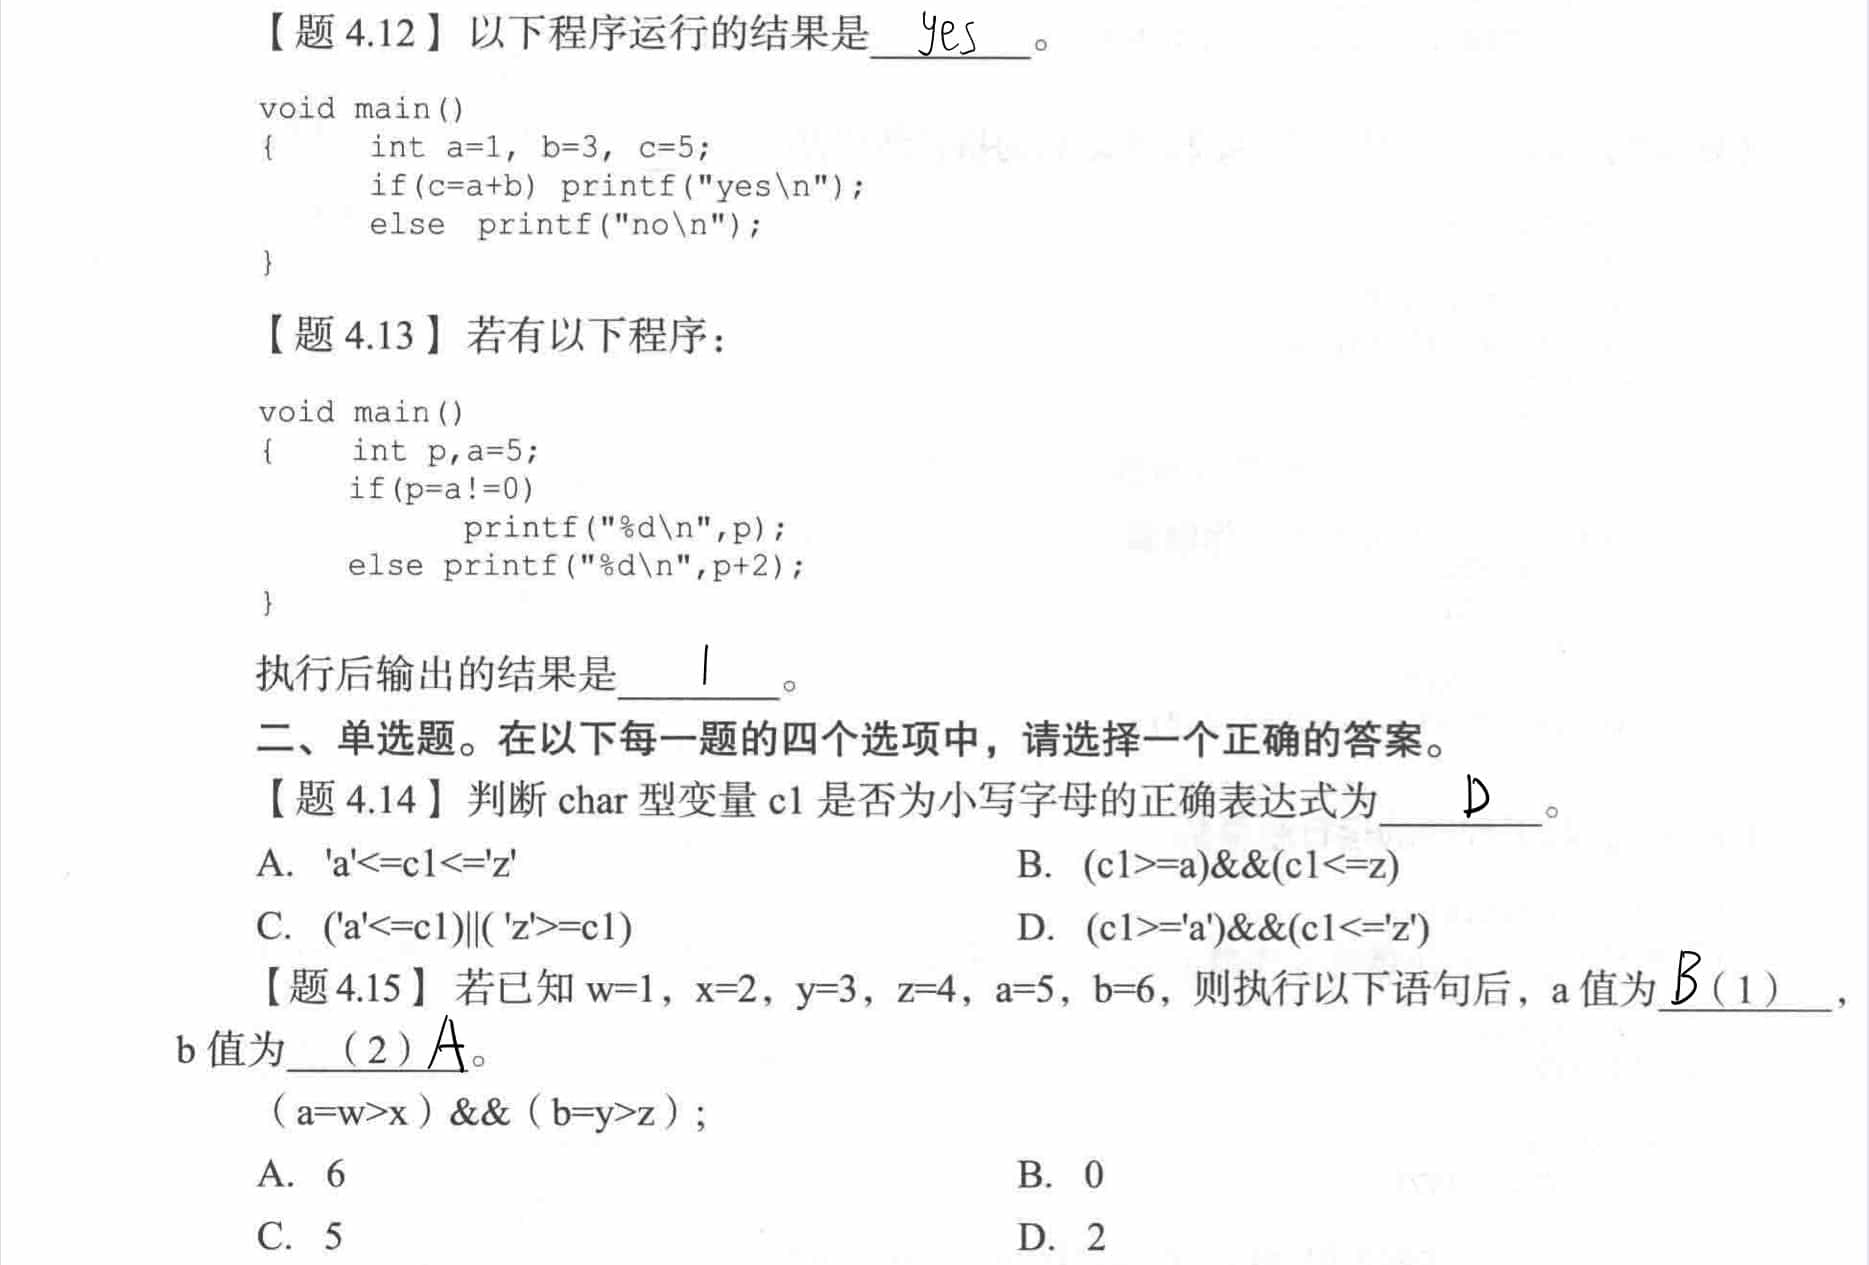 【题 4.12】以下程序运行的结果是 yes 。
void main()
{ int a=1, b=3, c=5;
if(c=a+b) printf("yes\n");
else printf("no\n");
}
【题 4.13】若有以下程序：
void main()
{ int p,a=5;
if(p=a!=0)
printf("%d\n",p);
else printf("%d\n",p+2);
}
执行后输出的结果是 1 。
二、单选题。在以下每一题的四个选项中，请选择一个正确的答案。
【题 4.14】判断 char 型变量 c1 是否为小写字母的正确表达式为 D 。
A. 'a'<=c1<='z' B. (c1>=a)&&(c1<=z)
C. ('a'<=c1)||( 'z'>=c1) D. (c1>='a')&&(c1<='z')
【题 4.15】若已知 w=1，x=2，y=3，z=4，a=5，b=6，则执行以下语句后，a 值为 B（1），
b 值为（2）A。
（a=w>x）&&（b=y>z）；
A. 6 B. 0
C. 5 D. 2